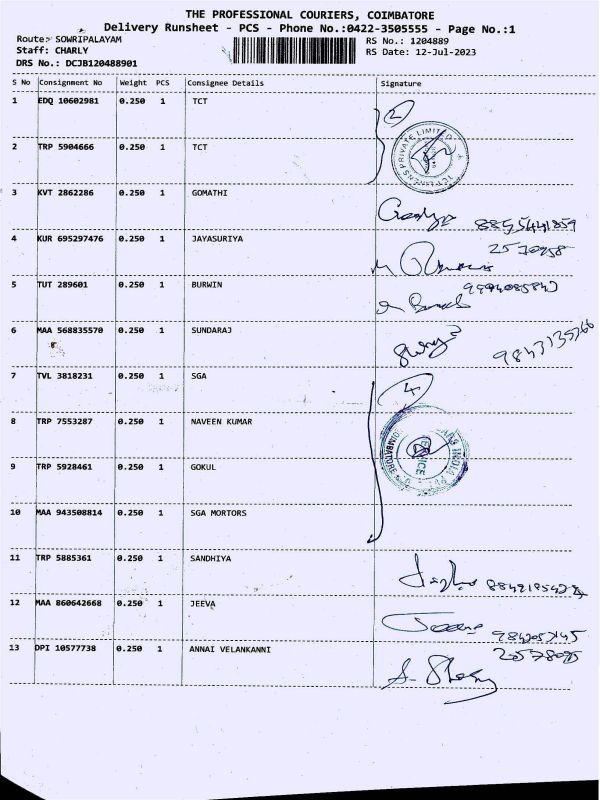 THE PROFESSIONAL COURIERS, COIMBATORE
Delivery Runsheet - PCS - Phone No.:0422-3505555 - Page No.:1
Route: SOWRIPALAYAM
RS No.: 1204889
Staff: CHARLY
RS Date: 12-Jul-2023
DRS No.: DCJB120488901
S No Consignment No Weight PCS Consignee Details Signature
1 EDQ 10602981 0.250 1 TCT
2
2 TRP 5904666 0.250 1 TCT
PRIVATE LIMITED
3 KVT 2862286 0.250 1 GOMATHI
4 KUR 695297476 0.250 1 JAYASURIYA
5 TUT 289601 0.250 1 BURWIN
6 MAA 568835570 0.250 1 SUNDARAJ
7 TVL 3818231 0.250 1 SGA
4
8 TRP 7553287 0.250 1 NAVEEN KUMAR
9 TRP 5928461 0.250 1 GOKUL
10 MAA 943508814 0.250 1 SGA MORTORS
11 TRP 5885361 0.250 1 SANDHIYA
12 MAA 860642668 0.250 1 JEEVA
13 DPI 10577738 0.250 1 ANNAI VELANKANNI